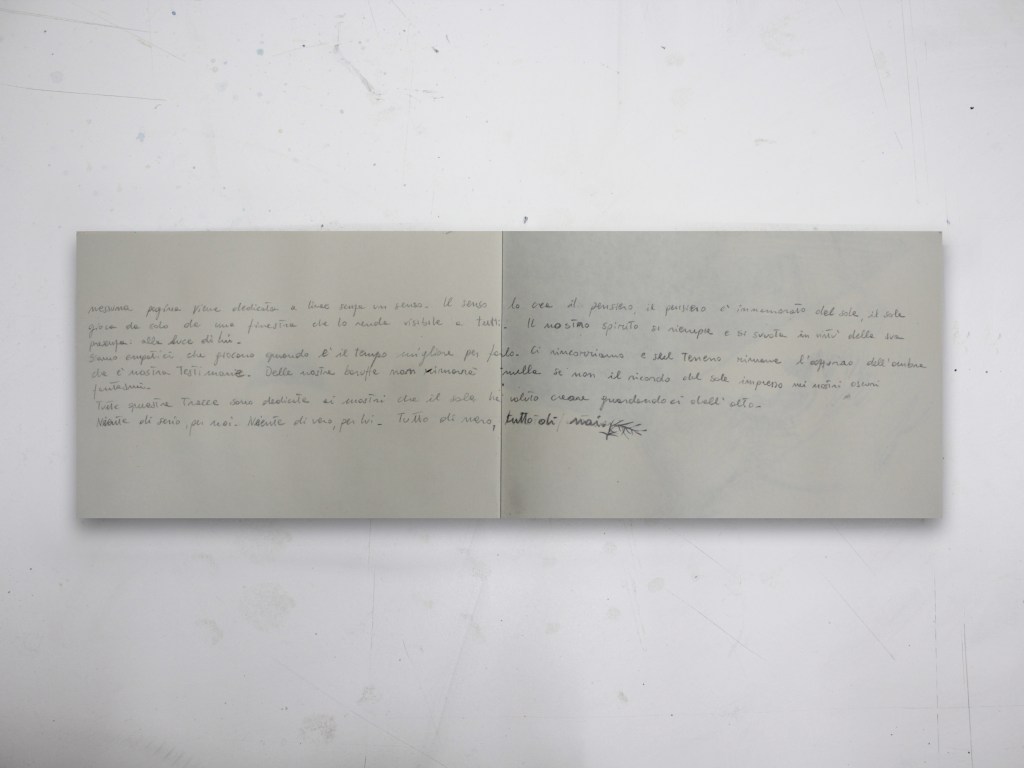 nessuna pagina viene dedicata a linee senza un senso. Il senso lo crea il pensiero, il pensiero e' innamorato del sole, il sole
gioca da cielo da una finestra che lo renda visibile a tutti. Il nostro spirito si riempie e si svuota in virtu' della sua
presenza: alla luce di lui.
Siamo empatici che giocano quando e' il tempo migliore per farlo. Ci rincorriamo e sul terreno rimane l'opporsi dell'ombra
da e' nostra Testimone. Delle nostre baruffe non rimarrà nulla se non il ricordo del sole impresso nei nostri oscuri
fantasmi.
Tutte queste Tracce sono dedicate ai mostri che il sole ha voluto creare guardandoci dall'alto.
Niente di serio, per noi. Niente di vero, per lui. Tutto di nero, tutto di noi.